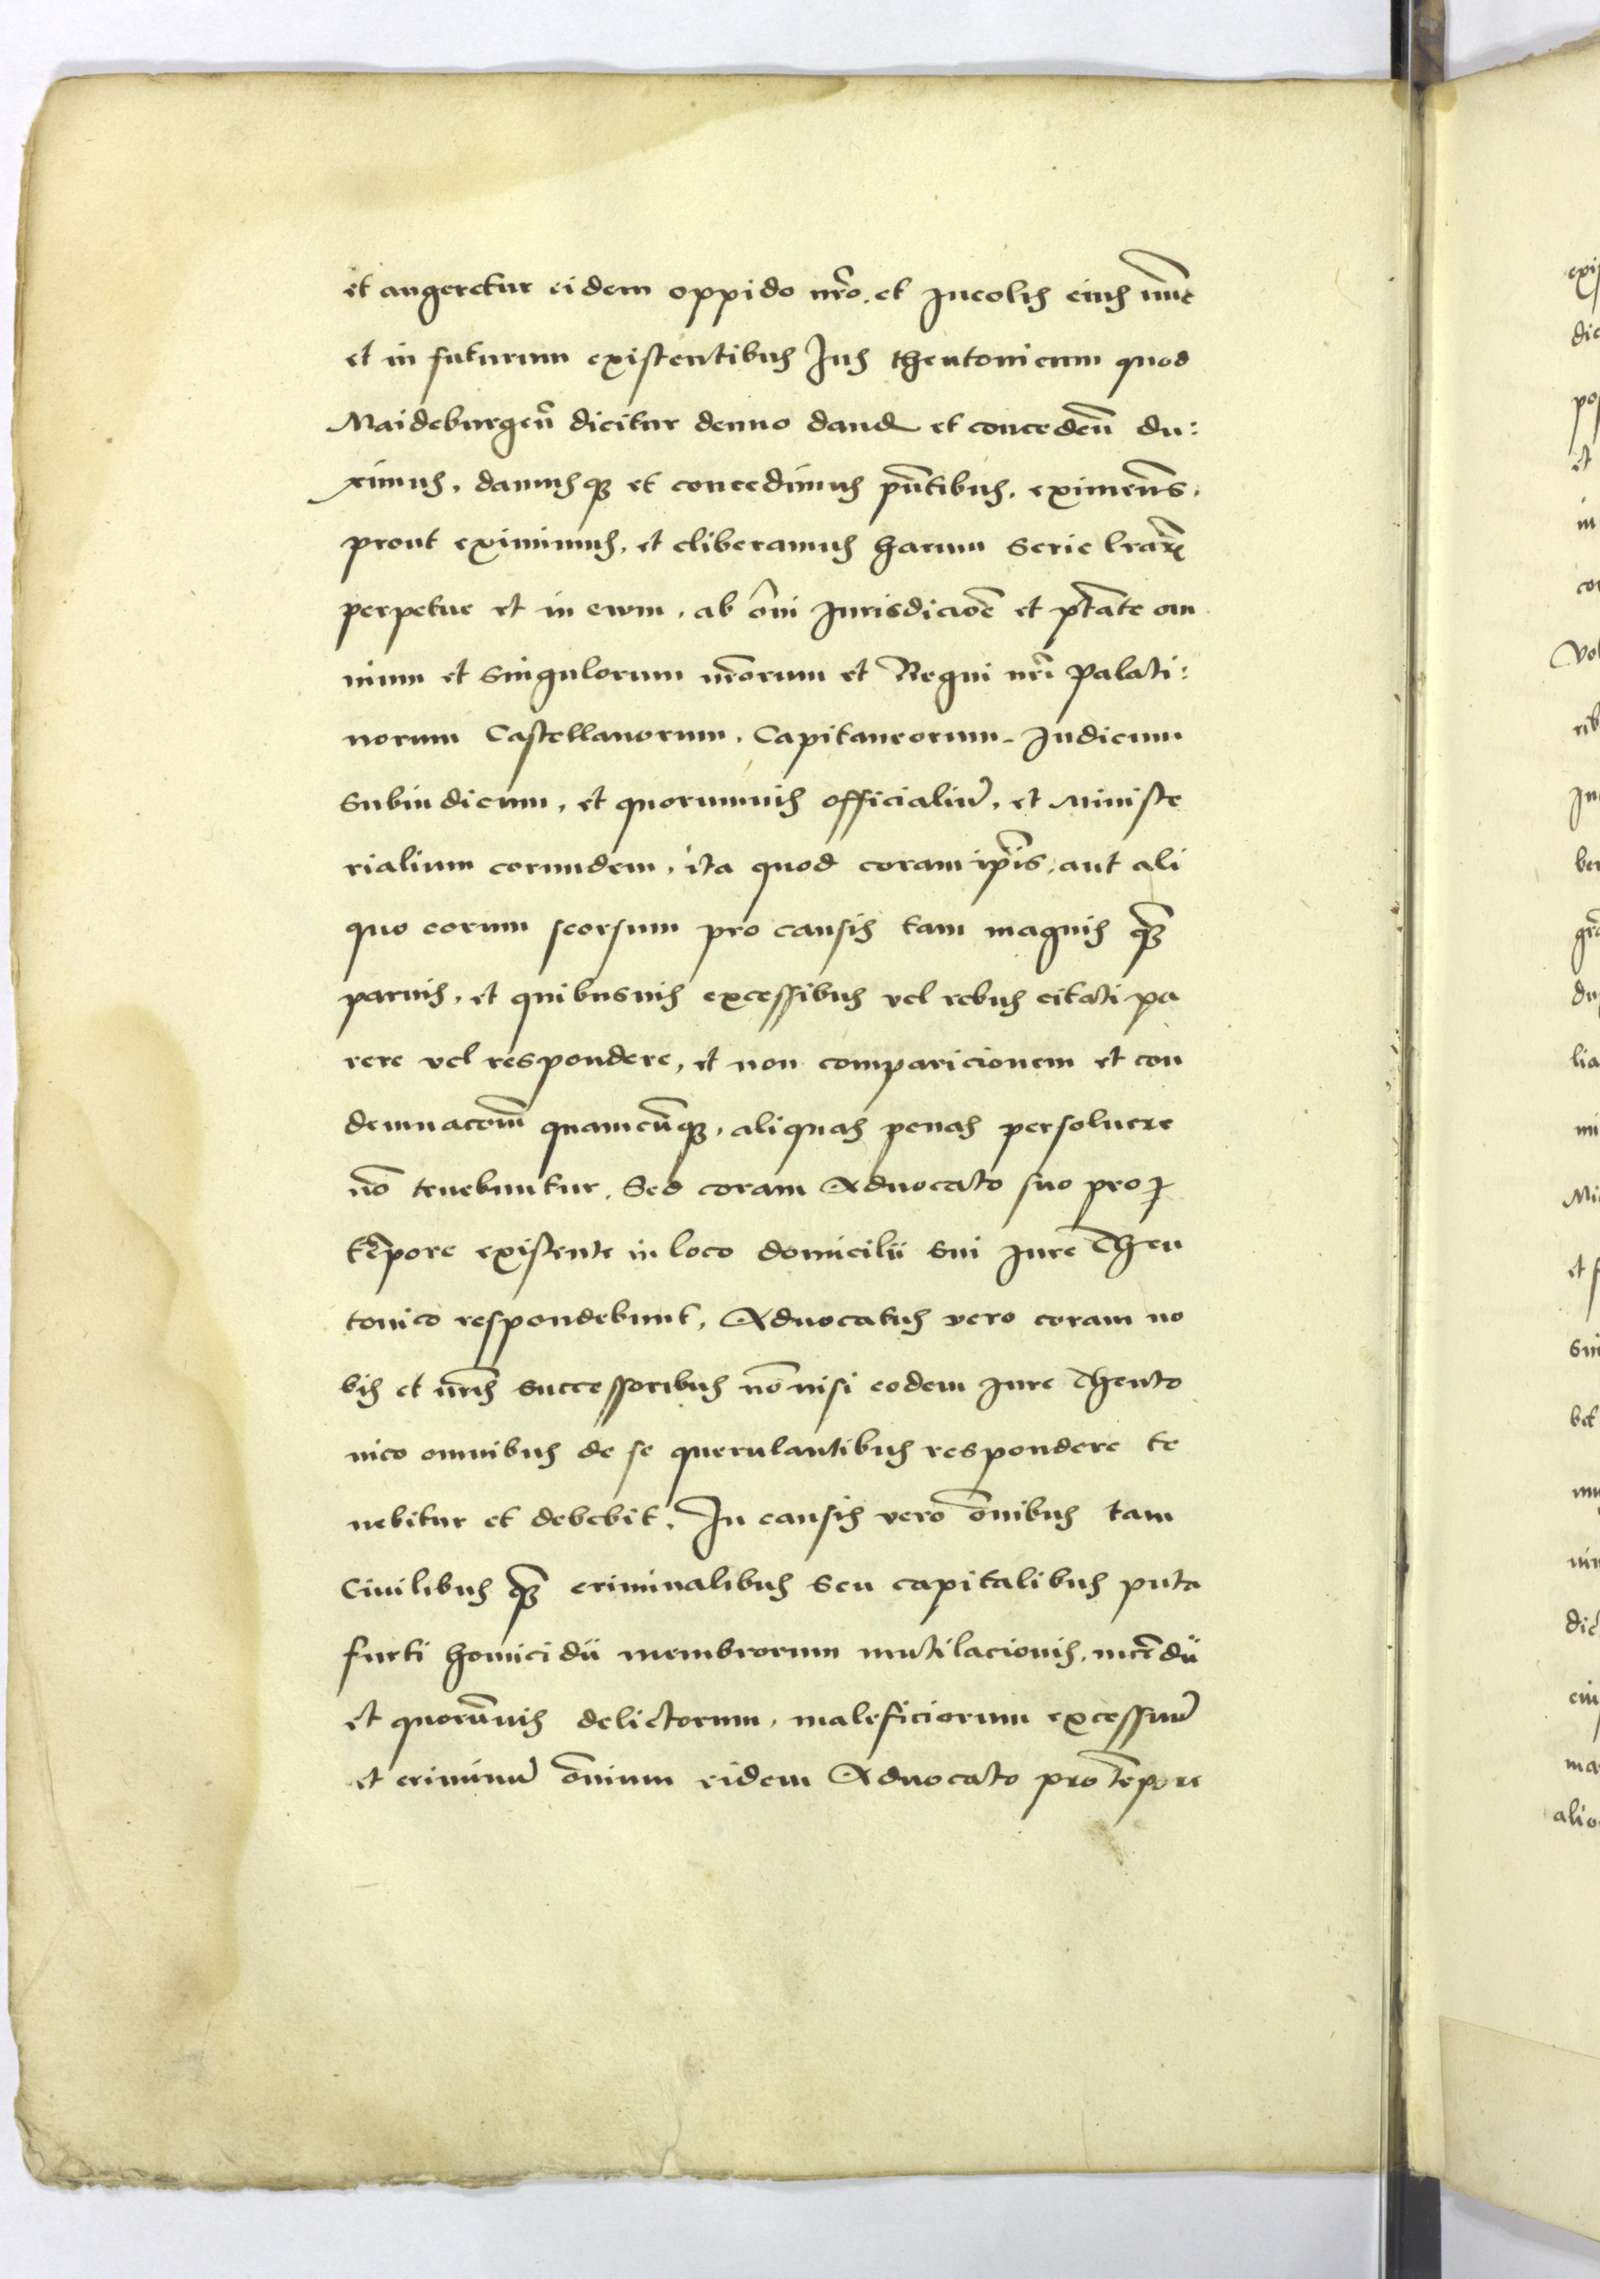 et augeretur eidem oppido nr̄o. et Incolis eius nūnc
et in futurum existentibus Jus theutonicum quod
Maideburgeñ dicitur denuo dand et concedeñ du:
ximus, damusqȝ et concedimus pn̄tibus, eximen̄s,
prout eximimus, et eliberamus harum serie lrarꝝ
perpetue et in ewm, ab om̄i Jurisdiccōe et ptāte om
nium et singulorum nr̄orum et Regni nr̄i Palati:
norum Castellanorum, Capitaneorum, Iudicum
Subiudicum, et quorumuis officialiū, et Ministe
rialium eorundem, ita quod coram ipīs, aut ali
quo eorum seorsum pro causis tam magnis qȝ̄
paruis, et quibusuis excessibus vel rebus citati pa
rere vel respondere, et non comparicionem et con
demnacōem quamcūnqȝ, aliquas penas persoluere
nō tenebuntur, Sed coram Aduocato suo pro
tēpore existente in loco domicilii sui Jure Theu
tonico respondebunt, Aduocatus vero coram no
bis et nr̄is successoribus nō nisi eodem Jure Theuto
nico omnibus de se querulantibus respondere te
nebitur et debebit, In causis vero om̄ibus tam
Ciuilibus qȝ̄ criminalibus seu capitalibus puta
furti homicidii membrorum mutilacionis, incēdii
et quorūmuis delictorum, maleficiorum excessuū
et criminū om̄ium eidem Aduocato pro tēpore
expi
dic
pos
et
in
co
Vol
rib
Ju
ber
gr
du
lia
mi
Mi
et f
sin
bet
mu
nin
dic
eiu
ma
alio